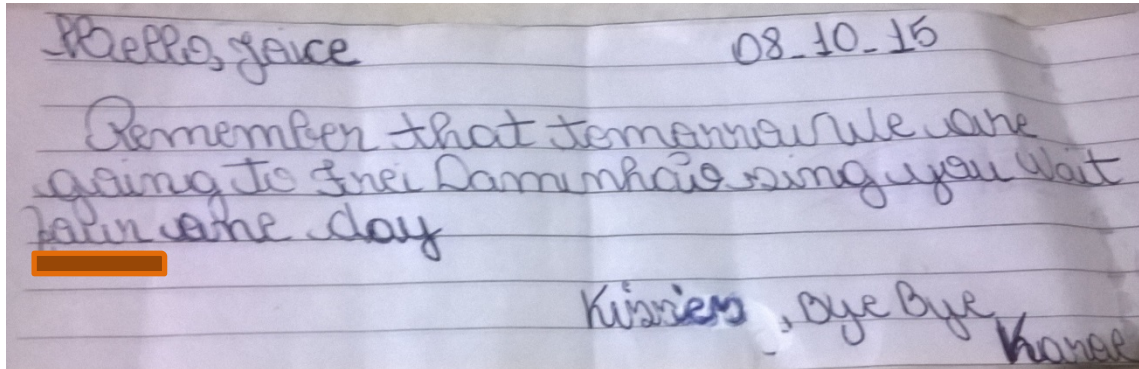 Hello, Joice 08-10-15
Remember that tomorrow we are
going to Frei Daminhão sing you Wait
are day
Kissies, Bye Bye